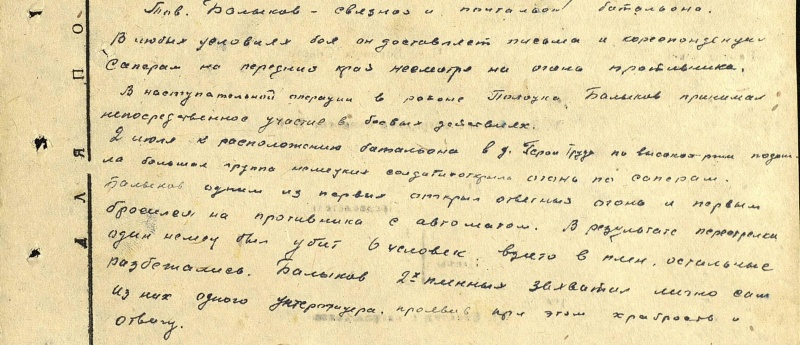 Тов. Балыков - связной и почтальон батальона.
В любых условиях боя он доставляет письма и кореспонденцию
саперам на передний край несмотря на огонь противника.
В наступательной операции в районе Полоцка, Балыков принимал
непосредственное участие в боевых действиях.
2 июля к расположению батальона в д. Герои Труда по высокой ржи подош-
ла большая группа немецких солдат и открыла огонь по саперам.
Балыков одним из первых открыл ответный огонь и первым
бросился на противника с автоматом. В результате перестрелки
один немец был убит 6 человек взято в плен, остальные
разбежались. Балыков 2х пленных захватил лично сам
из них одного унтерофицера, проявив при этом храбрость и
отвагу.
ДЛЯ ПО